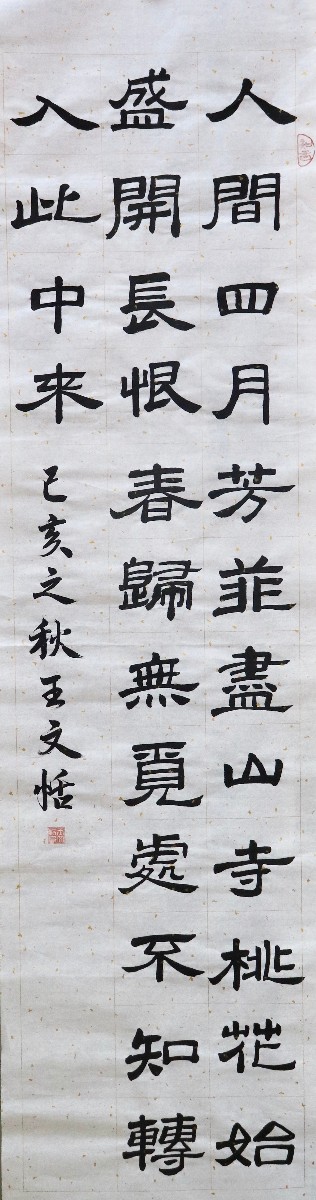 人間四月芳菲盡山寺桃花始
盛開長恨春歸無覓處不知轉
入此中來
己亥之秋王文恬